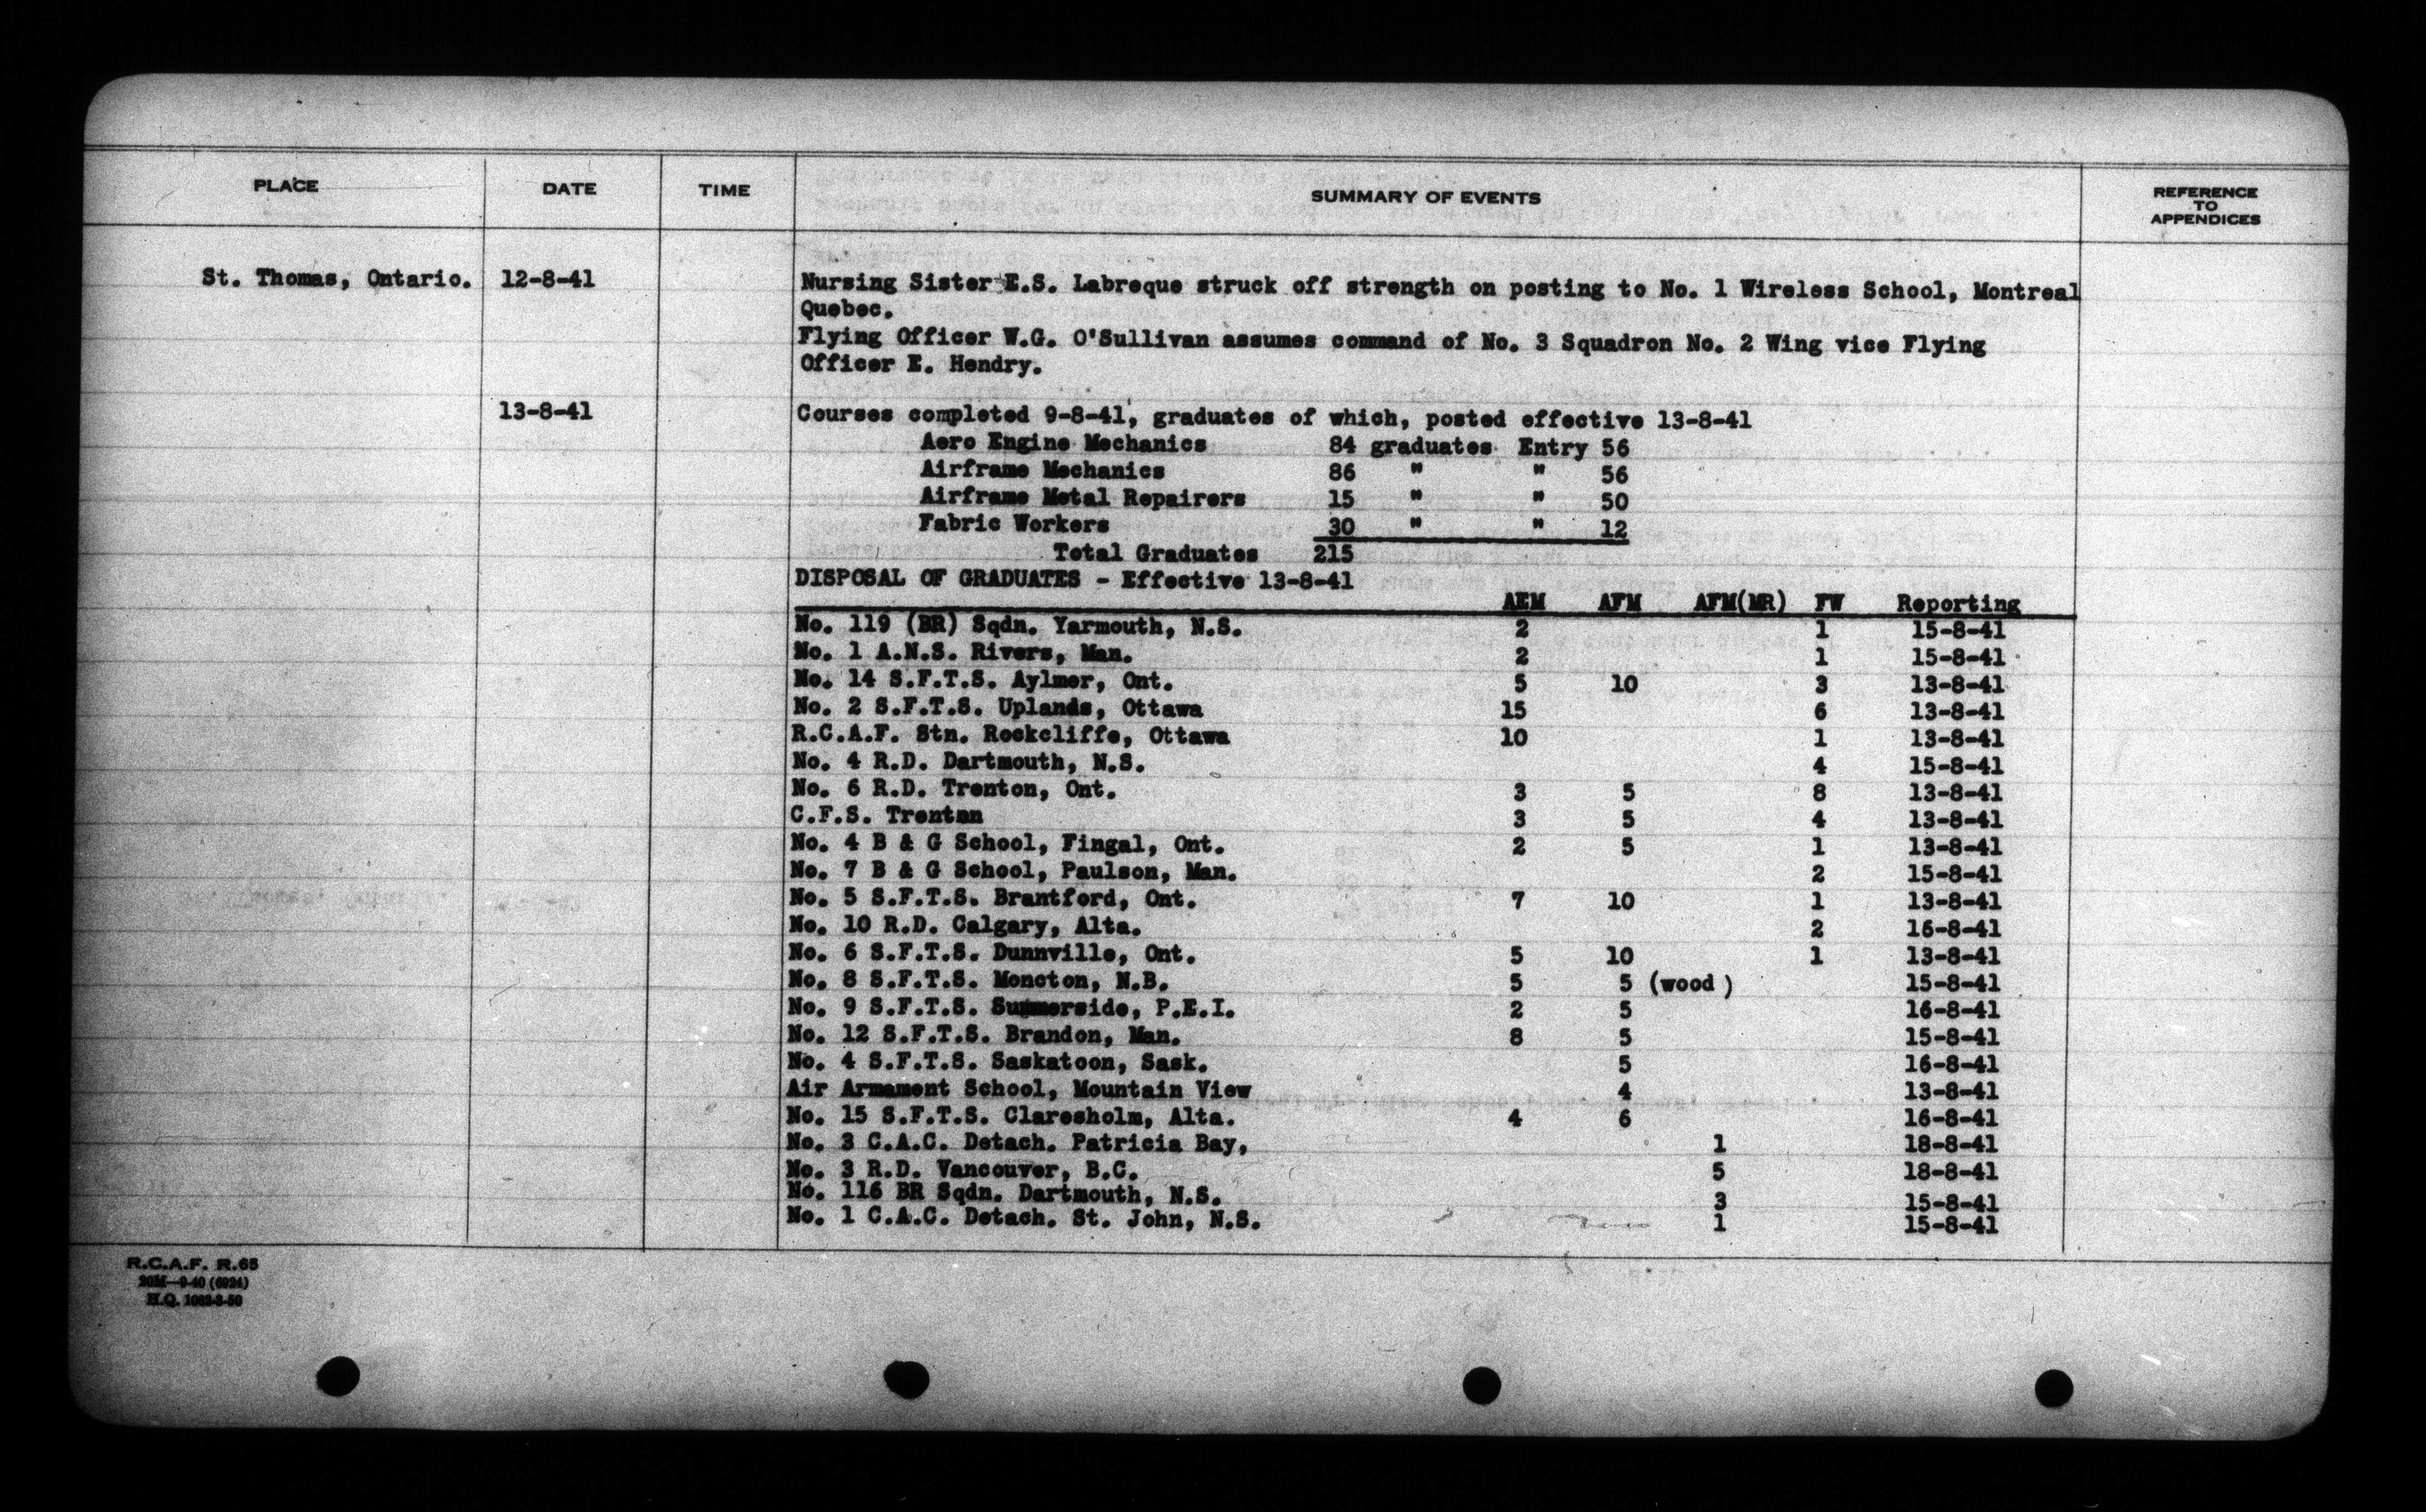 PLACE DATE TIME SUMMARY OF EVENTS REFERENCE TO APPENDICES
St. Thomas, Ontario. 12-8-41 Nursing Sister E.S. Labreque struck off strength on posting to No. 1 Wireless School, Montreal
Quebec.
Flying Officer W.G. O'Sullivan assumes command of No. 3 Squadron No. 2 Wing vice Flying
Officer E. Hendry.
13-8-41 Courses completed 9-8-41, graduates of which, posted effective 13-8-41
Aero Engine Mechanics 84 graduates Entry 56
Airframe Mechanics 86 " " 56
Airframe Metal Repairers 15 " " 50
Fabric Workers 30 " " 12
Total Graduates 215
DISPOSAL OF GRADUATES - Effective 13-8-41
AEM AFM AFM(MR) FW Reporting
No. 119 (BR) Sqdn. Yarmouth, N.S. 2 1 15-8-41
No. 1 A.N.S. Rivers, Man. 2 1 15-8-41
No. 14 S.F.T.S. Aylmer, Ont. 5 10 3 13-8-41
No. 2 S.F.T.S. Uplands, Ottawa 15 6 13-8-41
R.C.A.F. Stn. Rockcliffe, Ottawa 10 1 13-8-41
No. 4 R.D. Dartmouth, N.S. 4 15-8-41
No. 6 R.D. Trenton, Ont. 3 5 8 13-8-41
C.F.S. Trenton 3 5 4 13-8-41
No. 4 B & G School, Fingal, Ont. 2 5 1 13-8-41
No. 7 B & G School, Paulson, Man. 2 15-8-41
No. 5 S.F.T.S. Brantford, Ont. 7 10 1 13-8-41
No. 10 R.D. Calgary, Alta. 2 16-8-41
No. 6 S.F.T.S. Dunnville, Ont. 5 10 1 13-8-41
No. 8 S.F.T.S. Moncton, N.B. 5 5 (wood ) 15-8-41
No. 9 S.F.T.S. Summerside, P.E.I. 2 5 16-8-41
No. 12 S.F.T.S. Brandon, Man. 8 5 15-8-41
No. 4 S.F.T.S. Saskatoon, Sask. 5 16-8-41
Air Armament School, Mountain View 4 13-8-41
No. 15 S.F.T.S. Claresholm, Alta. 4 6 16-8-41
No. 3 C.A.C. Detach. Patricia Bay, 1 18-8-41
No. 3 R.D. Vancouver, B.C. 5 18-8-41
No. 116 BR Sqdn. Dartmouth, N.S. 3 15-8-41
No. 1 C.A.C. Detach. St. John, N.S. 1 15-8-41
R.C.A.F. R.65
20M—9-40 (6924)
H.Q. 1062-3-50